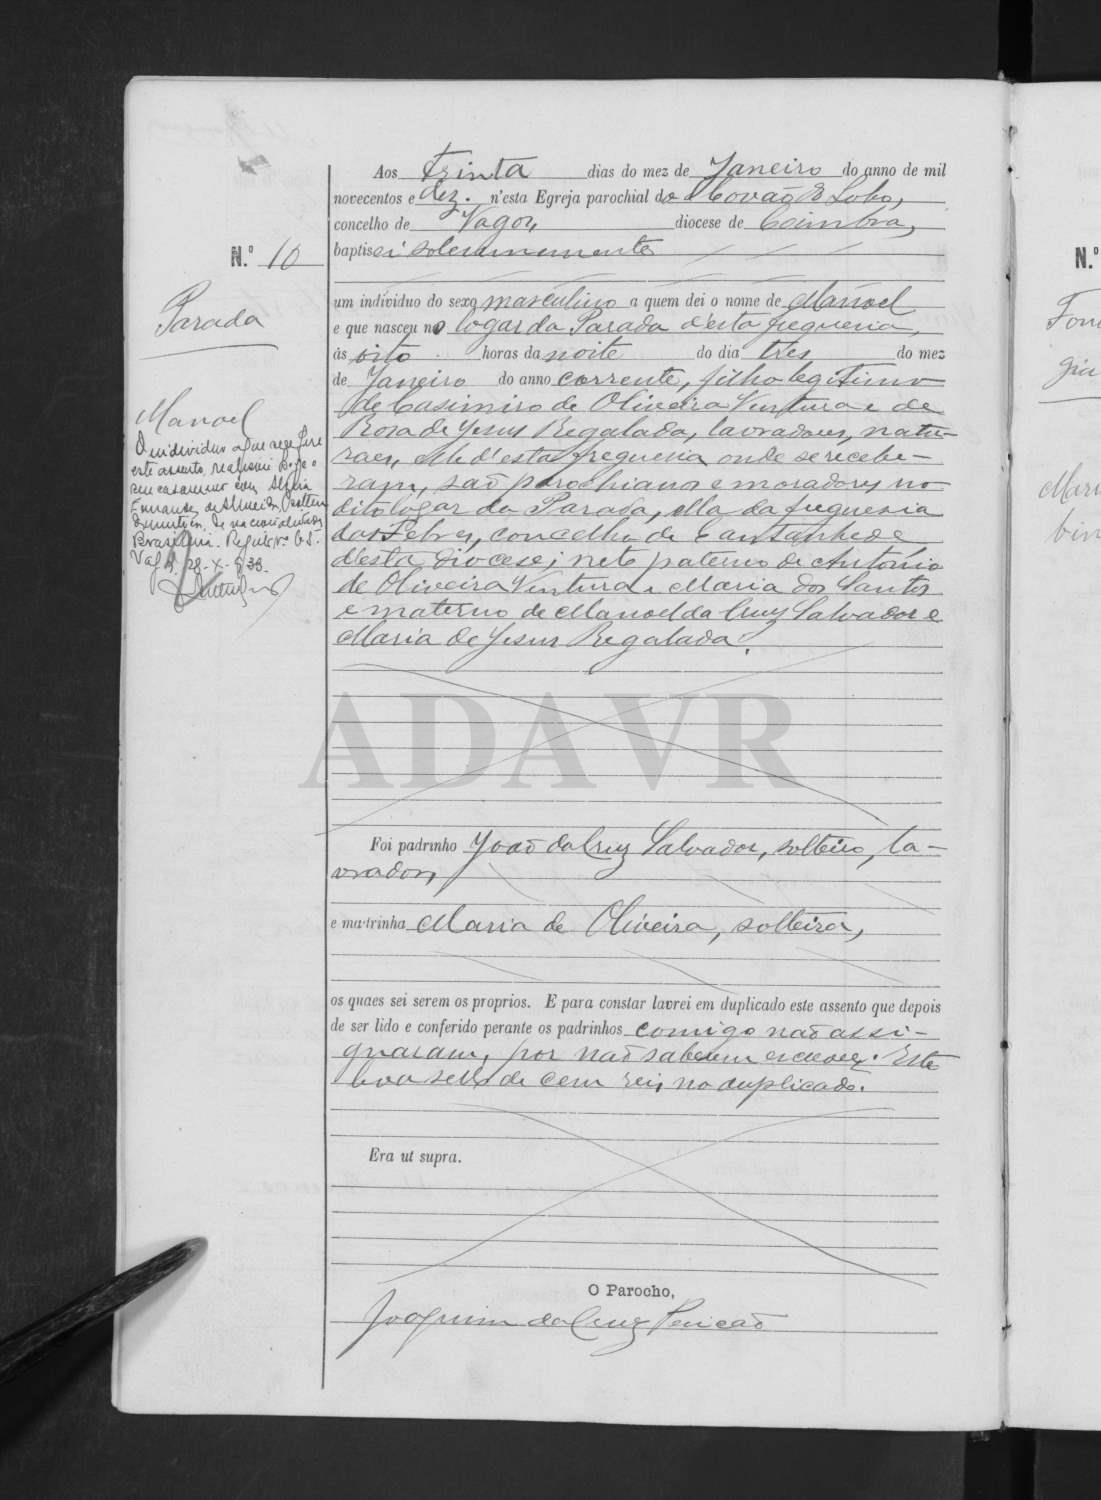 N.º 10
Parada
Manoel
O individuo a que se refere
este assento, realisou hoje o
seu casamento com
Fernandes de Almeida, solteira
de nacionalidade
Brasileira. Registo n.º 65.
Vagos, 28-X-938.
Aos trinta dias do mez de Janeiro do anno de mil
novecentos e dez. n'esta Egreja parochial do Covão do Lobo,
concelho de Vagos, diocese de Coimbra,
baptisei solemnemente
um individuo do sexo masculino a quem dei o nome de Manoel
e que nasceu no logar da Parada d'esta freguesia,
ás oito horas da noite do dia tres do mez
de Janeiro do anno corrente, filho legitimo
de Casimiro de Oliveira Ventura e de
Rosa de Jesus Regalada, lavradores, natu-
raes, elle d'esta freguesia onde se recebe-
ram, são parochianos e moradores no
dito logar da Parada, ella da freguesia
das Febres, concelho de Cantanhede
d'esta diocese; neto paterno de Antonio
de Oliveira Ventura e Maria dos Santos
e materno de Manoel da Cruz Salvador e
Maria de Jesus Regalada.
ADAVR
Foi padrinho João da Cruz Salvador, solteiro, la-
vrador,
e madrinha Maria de Oliveira, solteira,
os quaes sei serem os proprios. E para constar lavrei em duplicado este assento que depois
de ser lido e conferido perante os padrinhos comigo não assi-
gnaram, por não saberem escrever. Este
leva sello de cem reis no duplicado.
Era ut supra.
O Parocho,
Joaquim da Cruz Pericão
N.º
Fon
gia
Mari
bin